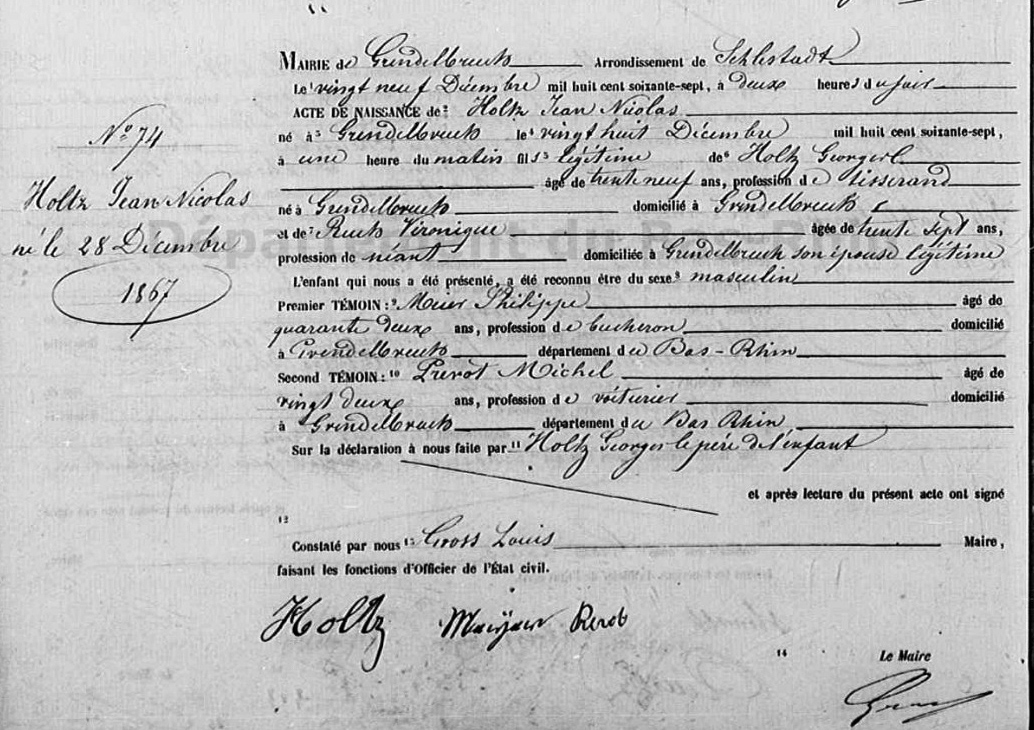 MAIRIE de Grendelbruch Arrondissement de Schlestadt
Le 1 vingt neuf Décembre mil huit cent soixante-sept, à deux heures du soir
ACTE DE NAISSANCE de 2 Holtz Jean Nicolas
né à 3 Grendelbruch le 4 vingt huit Décembre mil huit cent soixante-sept,
à une heure du matin fils 5 légitime de 6 Holtz Georges
âgé de trente neuf ans, profession de tisserand
né à Grendelbruch domicilié à Grendelbruch
et de 7 Ruch Véronique âgée de trente sept ans,
profession de néant domiciliée à Grendelbruch son épouse légitime
L'enfant qui nous a été présenté, a été reconnu être du sexe 8 masculin
Premier TÉMOIN : 9 Meier Philippe âgé de
quarante deux ans, profession de bucheron domicilié
à Grendelbruch département du Bas-Rhin
Second TÉMOIN : 10 Prevot Michel âgé de
vingt deux ans, profession de voiturier domicilié
à Grendelbruch département du Bas Rhin
Sur la déclaration à nous faite par 11 Holtz Georges le père de l'enfant
et après lecture du présent acte ont signé
12
Constaté par nous 13 Gross Louis Maire,
faisant les fonctions d'Officier de l'État civil.
Holtz
14 Le Maire
Gross
N° 74
Holtz Jean Nicolas
né le 28 Décembre
1867
Département du Bas-Rhin